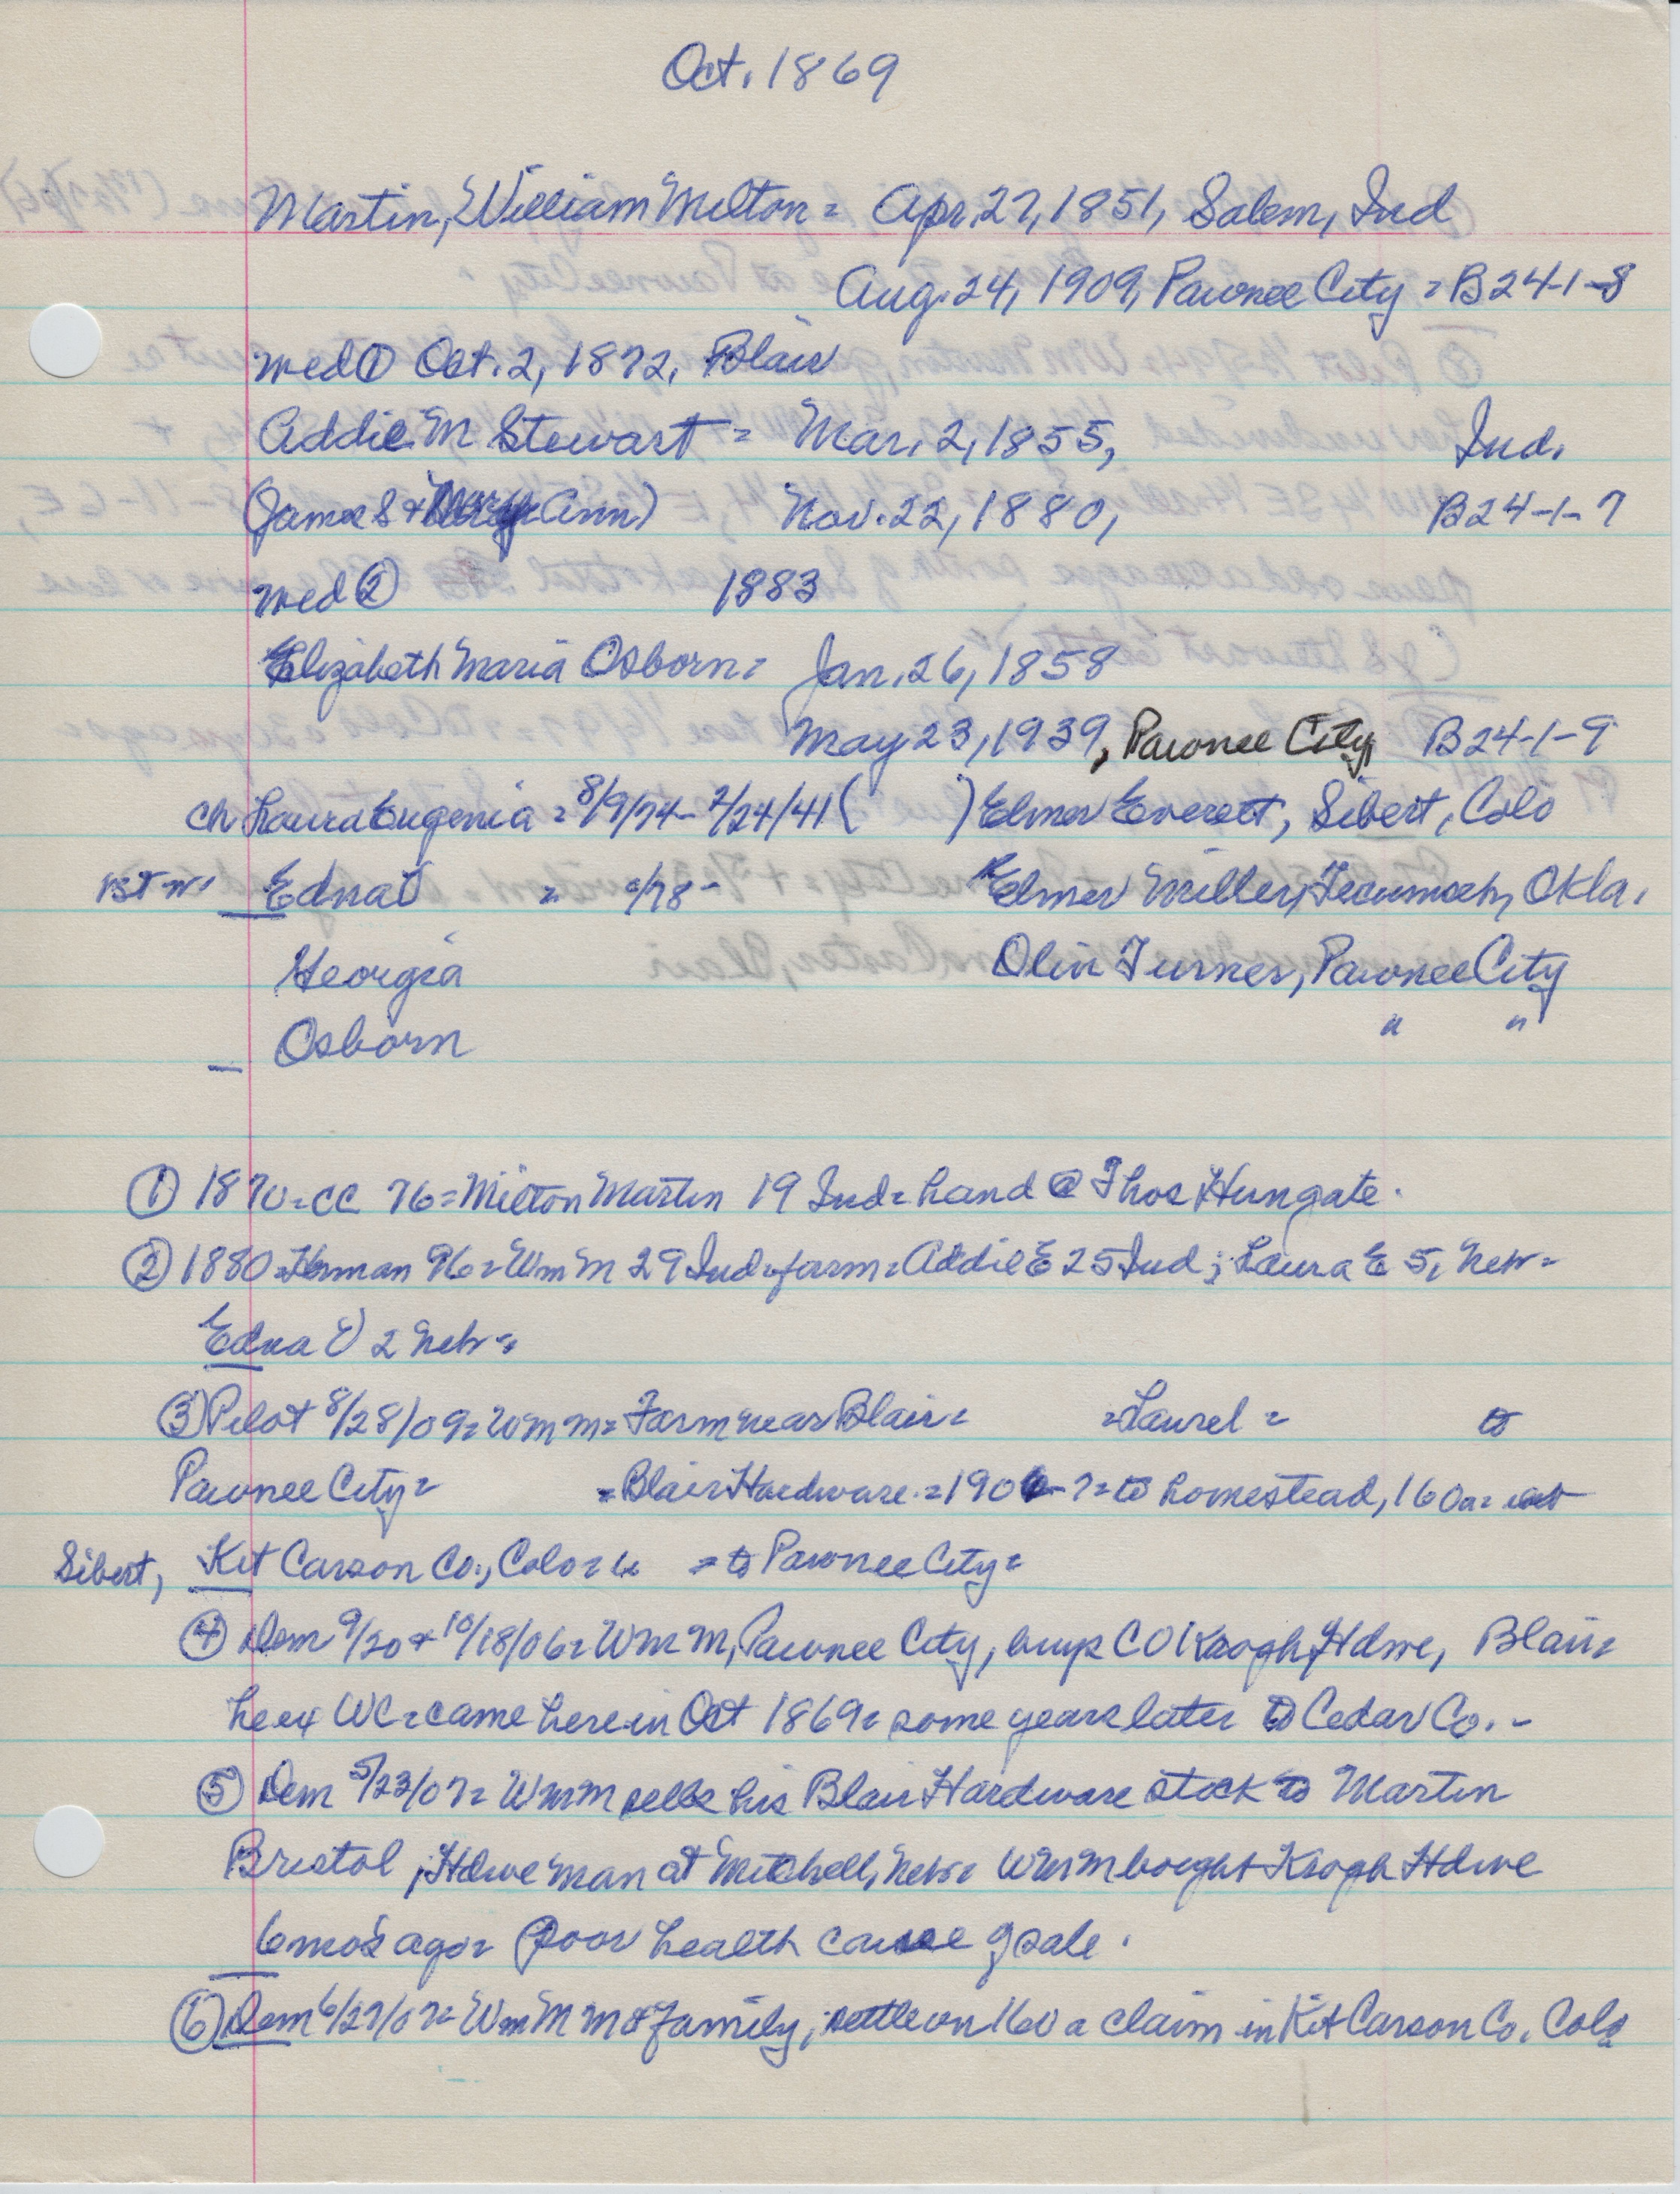 Oct. 1869
Martin, William Milton = Apr. 27, 1851, Salem, Ind
Aug. 24, 1909, Pawnee City = B24-1-8
wed ① Oct. 2, 1872, Blair
Addie M Stewart = Mar. 2, 1855, Ind.
(James S + Mary Ann) Nov. 22, 1880, B24-1-7
wed ② 1883
Elizabeth Maria Osborn = Jan. 26, 1858
May 23, 1939, Pawnee City B24-1-9
ch Laura Eugenia = 8/9/74 - 2/24/41 ( ) Elmer Everett, Sibert, Colo
1st w. Edna = /78 - Elmer Miller, Tecumseh, Okla.
Georgia Olin Turner, Pawnee City
– Osborn " "
① 1870 = CC 76 = Milton Martin 19 Ind = hand @ Thos Hungate.
② 1880 = Herman 96 = Wm M 29 Ind = farm = Addie E 25 Ind ; Laura E 5, Neb =
Edna 2 Neb =
③ Pilot 8/28/09 = Wm M = Farm near Blair = = Laurel = to
Pawnee City = = Blair Hardware = 1906-7 = to homestead, 160a =
Sibert, Kit Carson Co., Colo = = to Pawnee City =
④ Dem 9/20 + 10/18/06 = Wm M, Pawnee City, buys C O Keogh Hdwe, Blair =
he ex WC = came here in Oct 1869 = some years later to Cedar Co. -
⑤ Dem 5/23/07 = Wm M sells his Blair Hardware stock to Martin
Bristol, Hdwe man at Mitchell, Neb = Wm M bought Keogh Hdwe
6 mos ago = Poor health cause of sale.
⑥ Dem 6/27/07 = Wm M M + family, settle on 160 a claim in Kit Carson Co. Colo